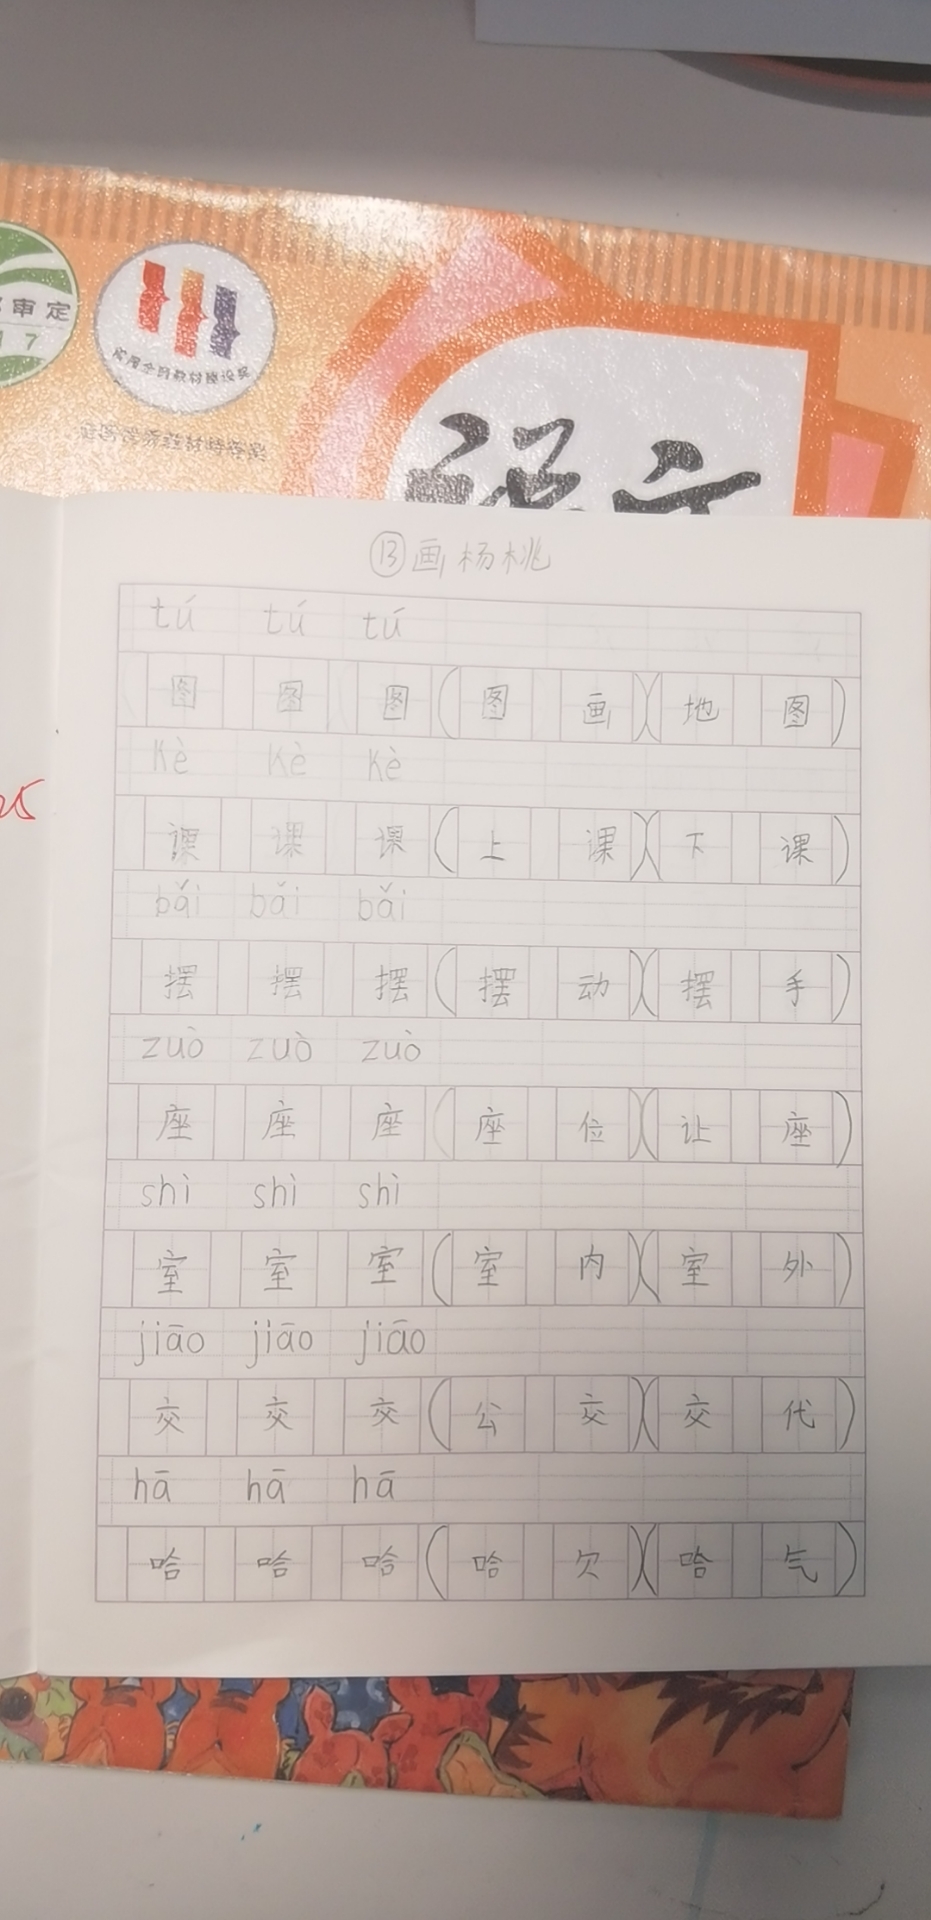 审定
17
语文
⑬画杨桃
tú tú tú
图 图 图 (图 画)(地 图)
Kè Kè Kè
课 课 课 (上 课)(下 课)
bǎi bǎi bǎi
摆 摆 摆 (摆 动)(摆 手)
zuò zuò zuò
座 座 座 (座 位)(让 座)
shì shì shì
室 室 室 (室 内)(室 外)
jiāo jiāo jiāo
交 交 交 (公 交)(交 代)
hā hā hā
哈 哈 哈 (哈 欠)(哈 气)